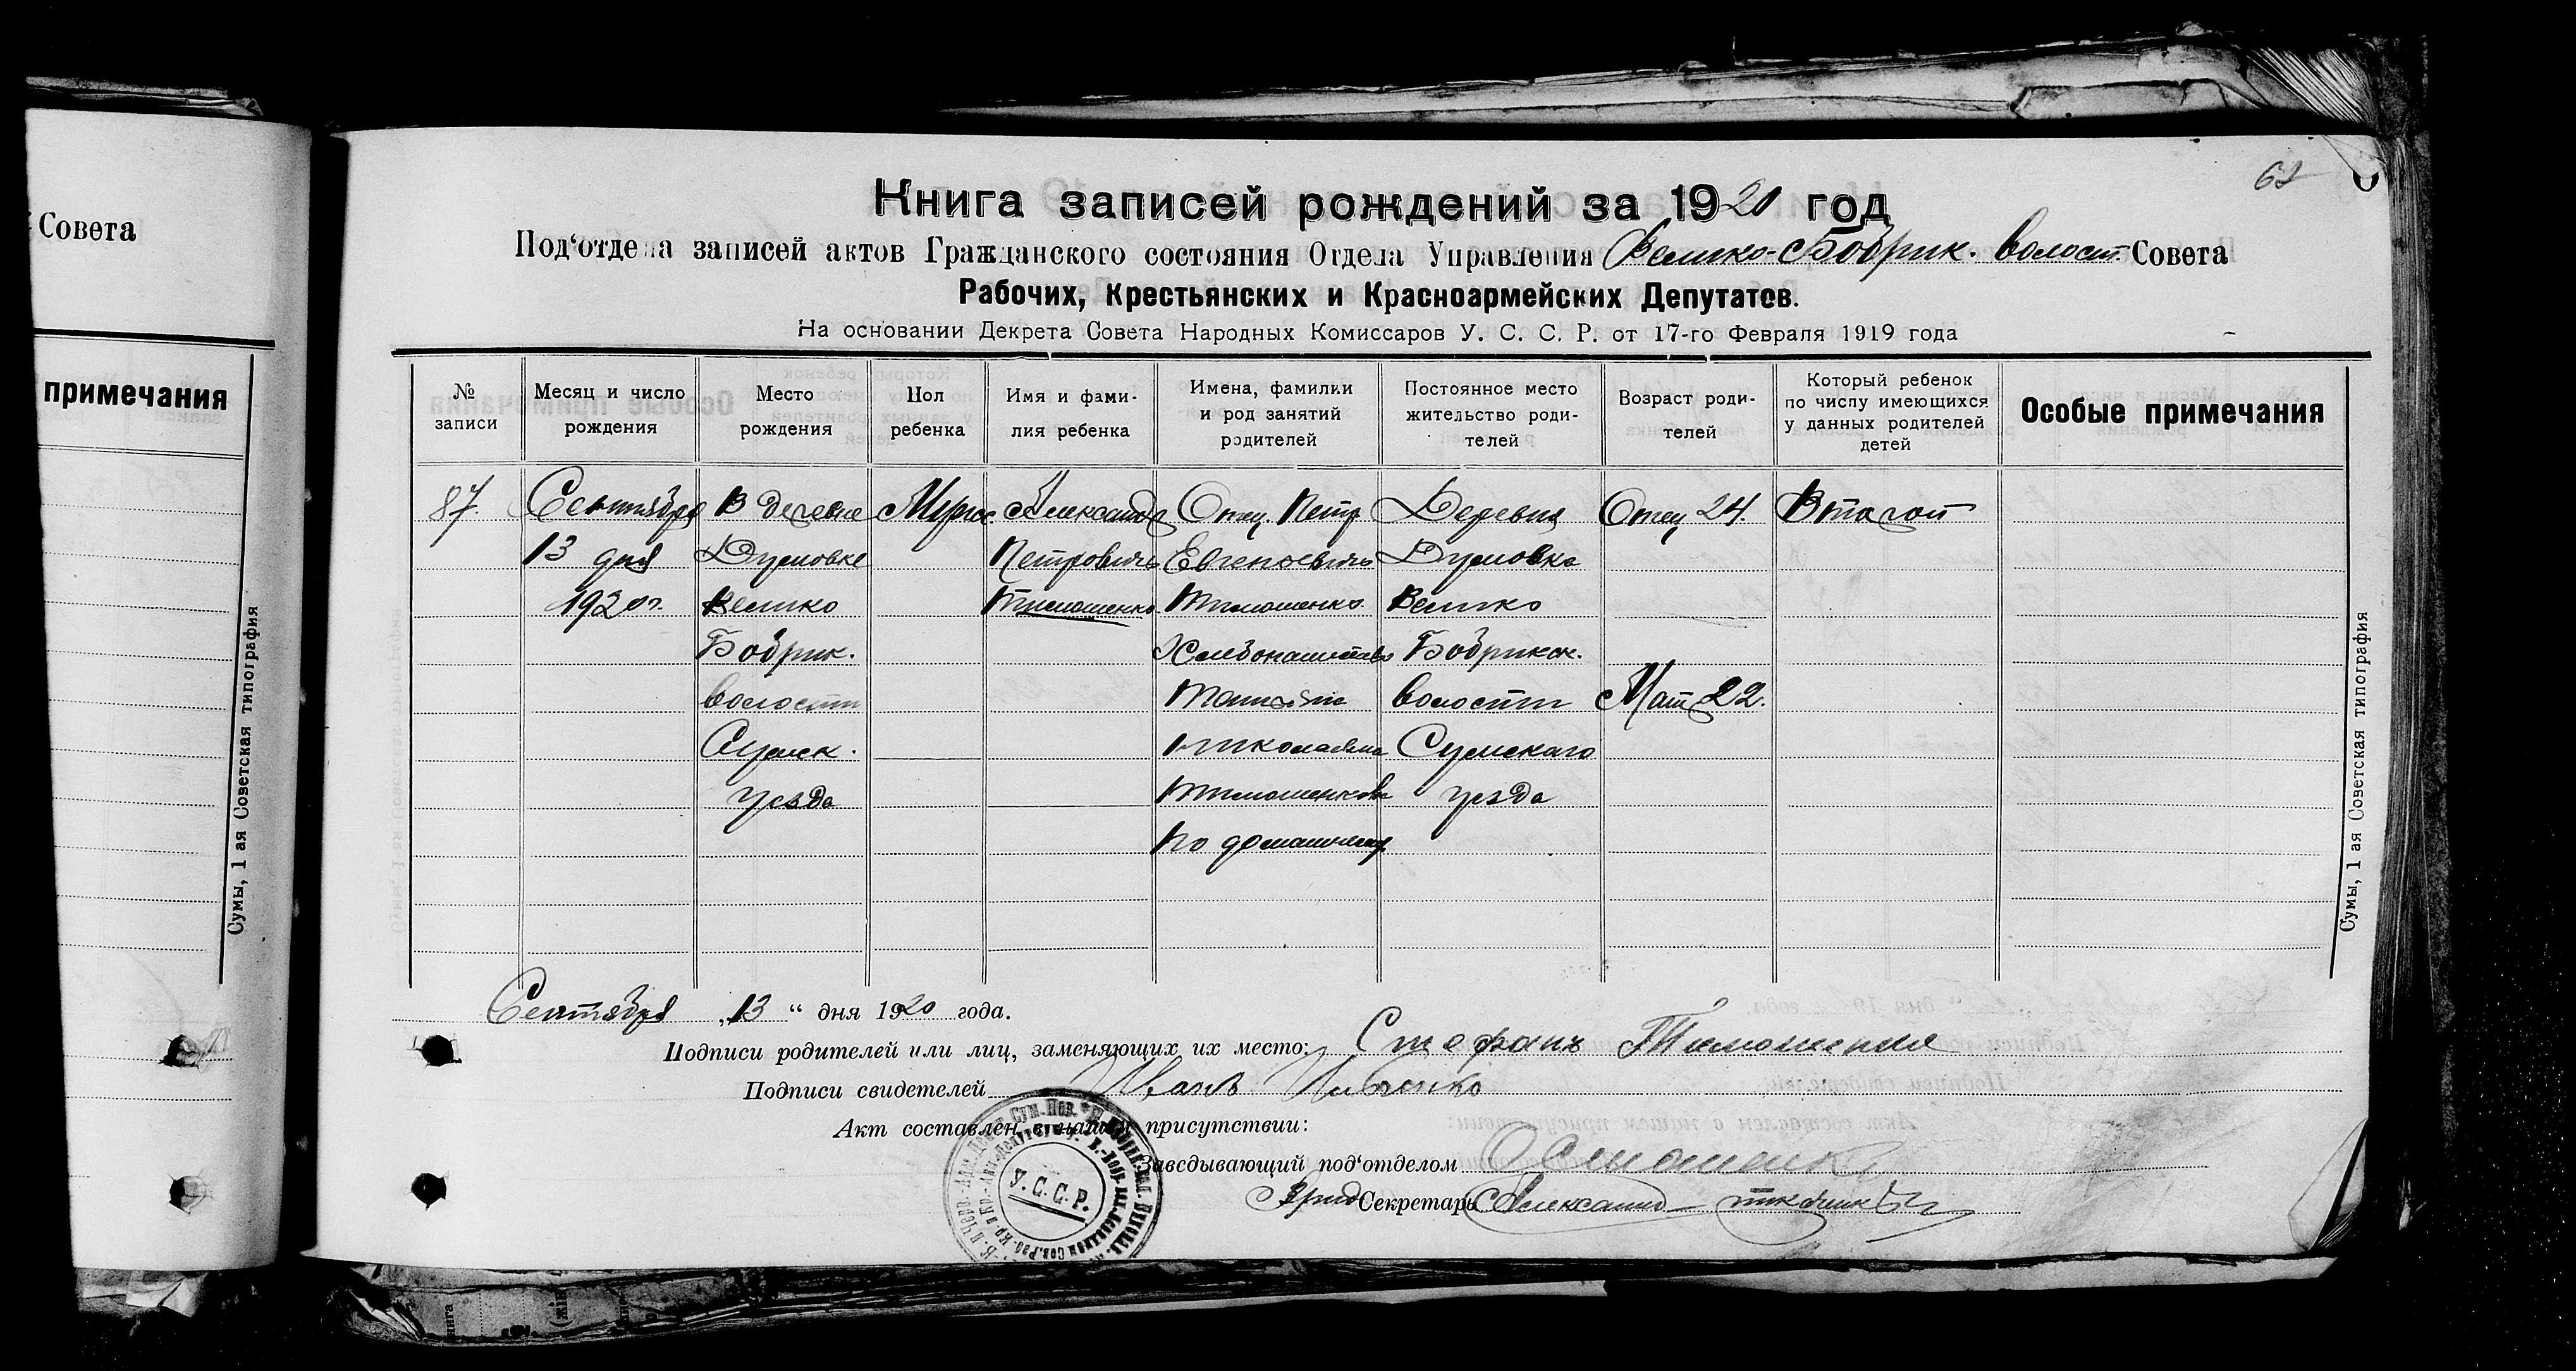 Совета
примечания
Сумы, 1 ая Советская типография
Книга записей рождений за 1920 год
Под'отдела записей актов Гражданского состояния Отдела Управления Велико-Бобрик. волост. Совета
Рабочих, Крестьянских и Красноармейских Депутатов.
На основании Декрета Совета Народных Комиссаров У. С. С. Р. от 17-го Февраля 1919 года
№ записи
Месяц и число рождения
Место рождения
Пол ребенка
Имя и фами-
лия ребенка
Имена, фамилии
и род занятий
родителей
Постоянное место
жительство роди-
телей
Возраст роди-
телей
Который ребенок
по числу имеющихся
у данных родителей
детей
Особые примечания
87. Сентября В деревне Мужс. Александр Отец Петр Деревня Отец 24. Второй
13 дня Думовке Петровичъ Евгеновичъ Думовка
1920 г. Велико Тимошенко. Тимошенко Велико
Бобрик. Хлебопашество Бобрикск.
волости Мать волости Мать 22.
Сумск. Николаевна Сумскаго
уезда Тимошенкова уезда
По домашнему
Сентября „13“ дня 1920 года.
Подписи родителей или лиц, заменяющих их место: Стефанъ Тимошенко
Подписи свидетелей Иванъ
Акт составлен в нашем присутствии:
Заведывающий под'отделом
Секретарь Александр
У. С. С. Р.
Сумы, 1 ая Советская типография